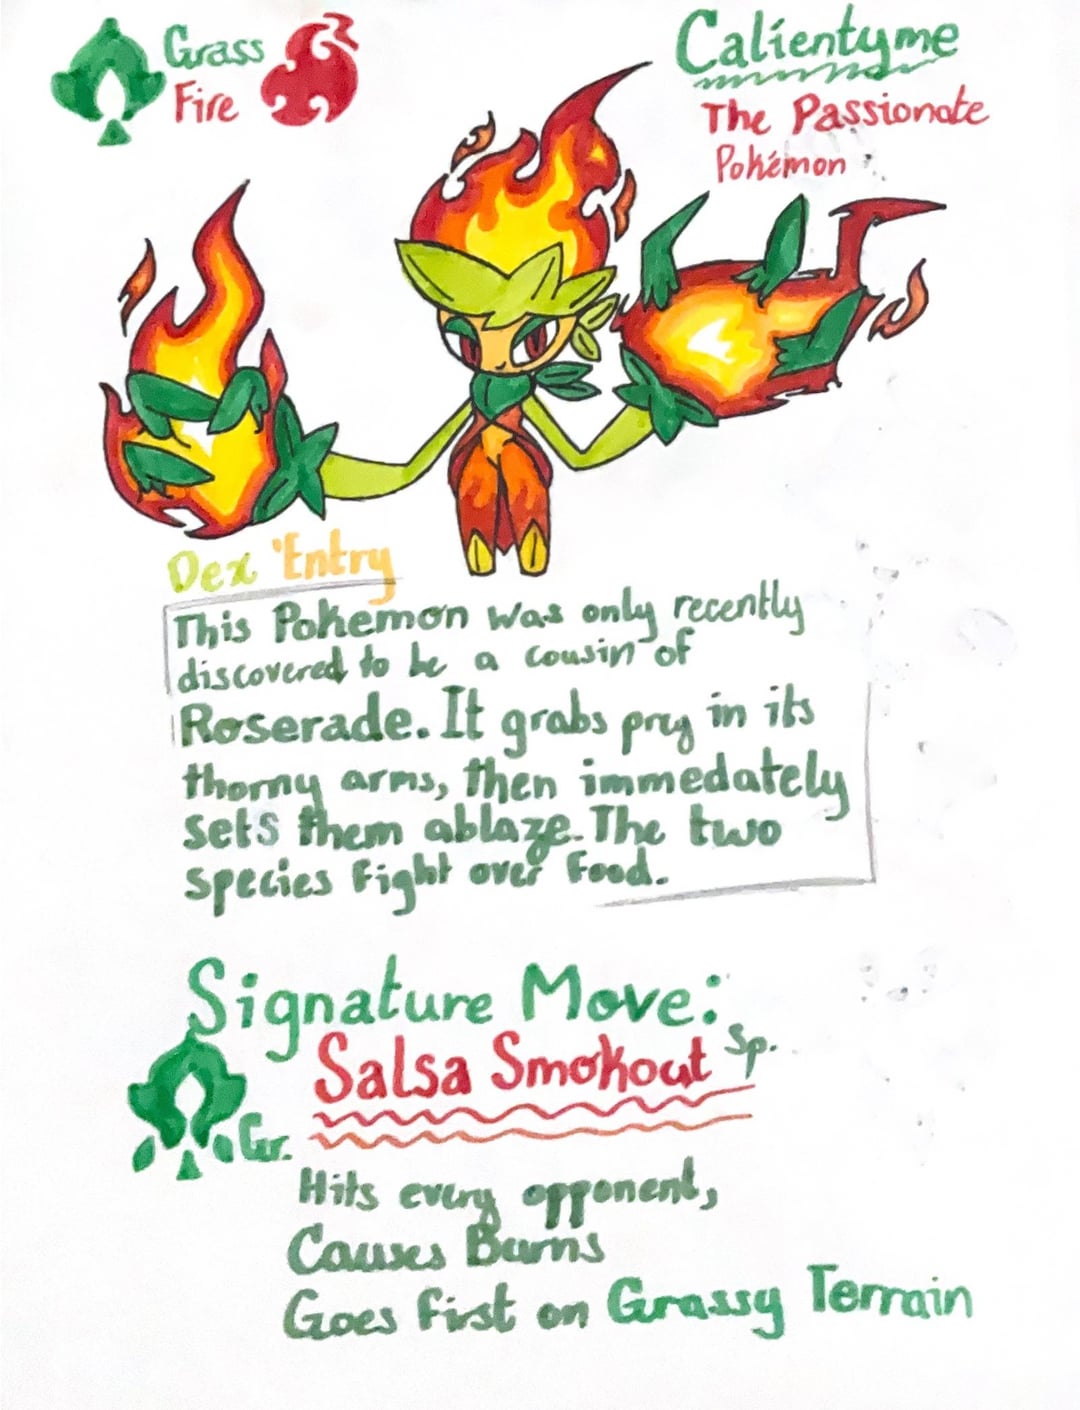 Grass
Fire
Calíentyme
The Passionate
Pokémon
Dex Entry
This Pokemon was only recently
discovered to be a cousin of
Roserade. It grabs prey in its
thorny arms, then immedately
sets them ablaze. The two
species fight over food.
Signature Move:
Salsa Smokout Sp.
Gr.
Hits every opponent,
Causes Burns
Goes first on Grassy Terrain